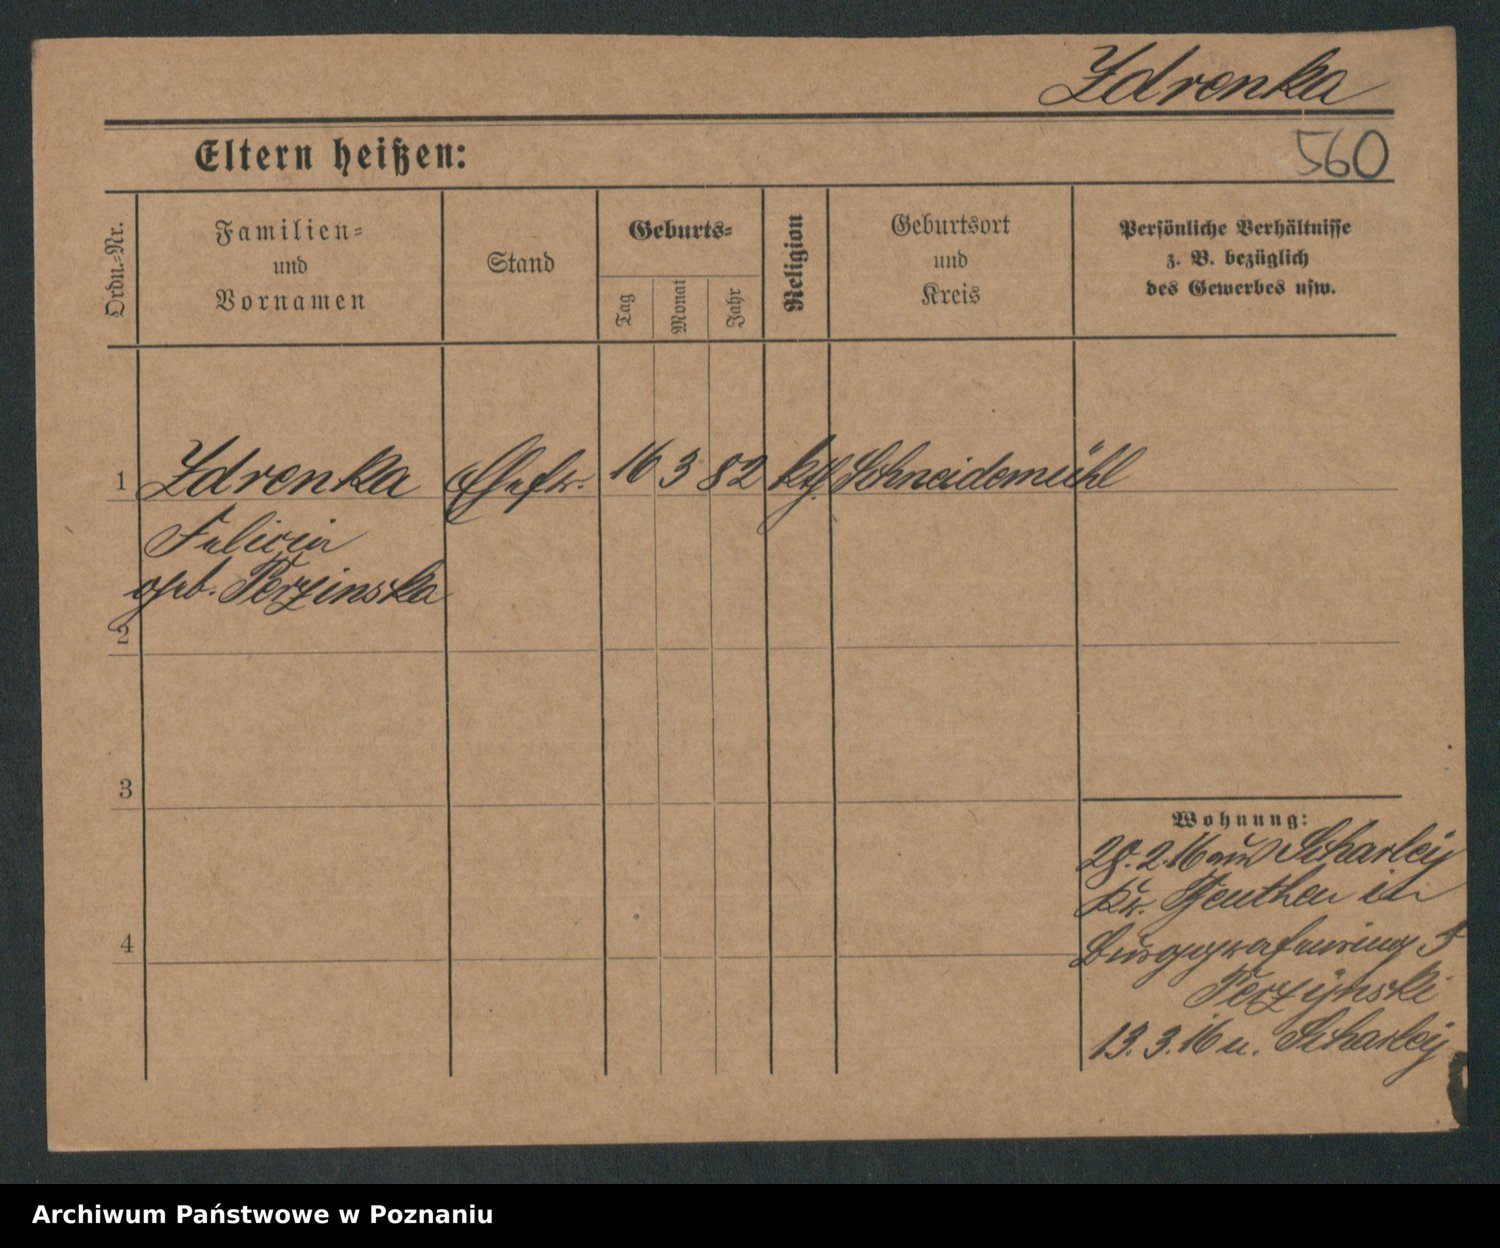 Zdrenka
560
Eltern heißen:
Ordn.-Nr.
Familien-
und
Vornamen
Stand
Geburts-
Tag
Monat
Jahr
Religion
Geburtsort
und
Kreis
Persönliche Verhältnisse
z. B. bezüglich
des Gewerbes usw.
1 Zdrenka Ehefr. 16 3 82 kth. Schneidemühl
Felicia
geb. Perzinska
2
3
Wohnung:
2.16 aus Scharley
Kr. Beuthen in
4
Burggrafenring 5
Perzÿnski
13.3.16 n. Scharley
Archiwum Państwowe w Poznaniu